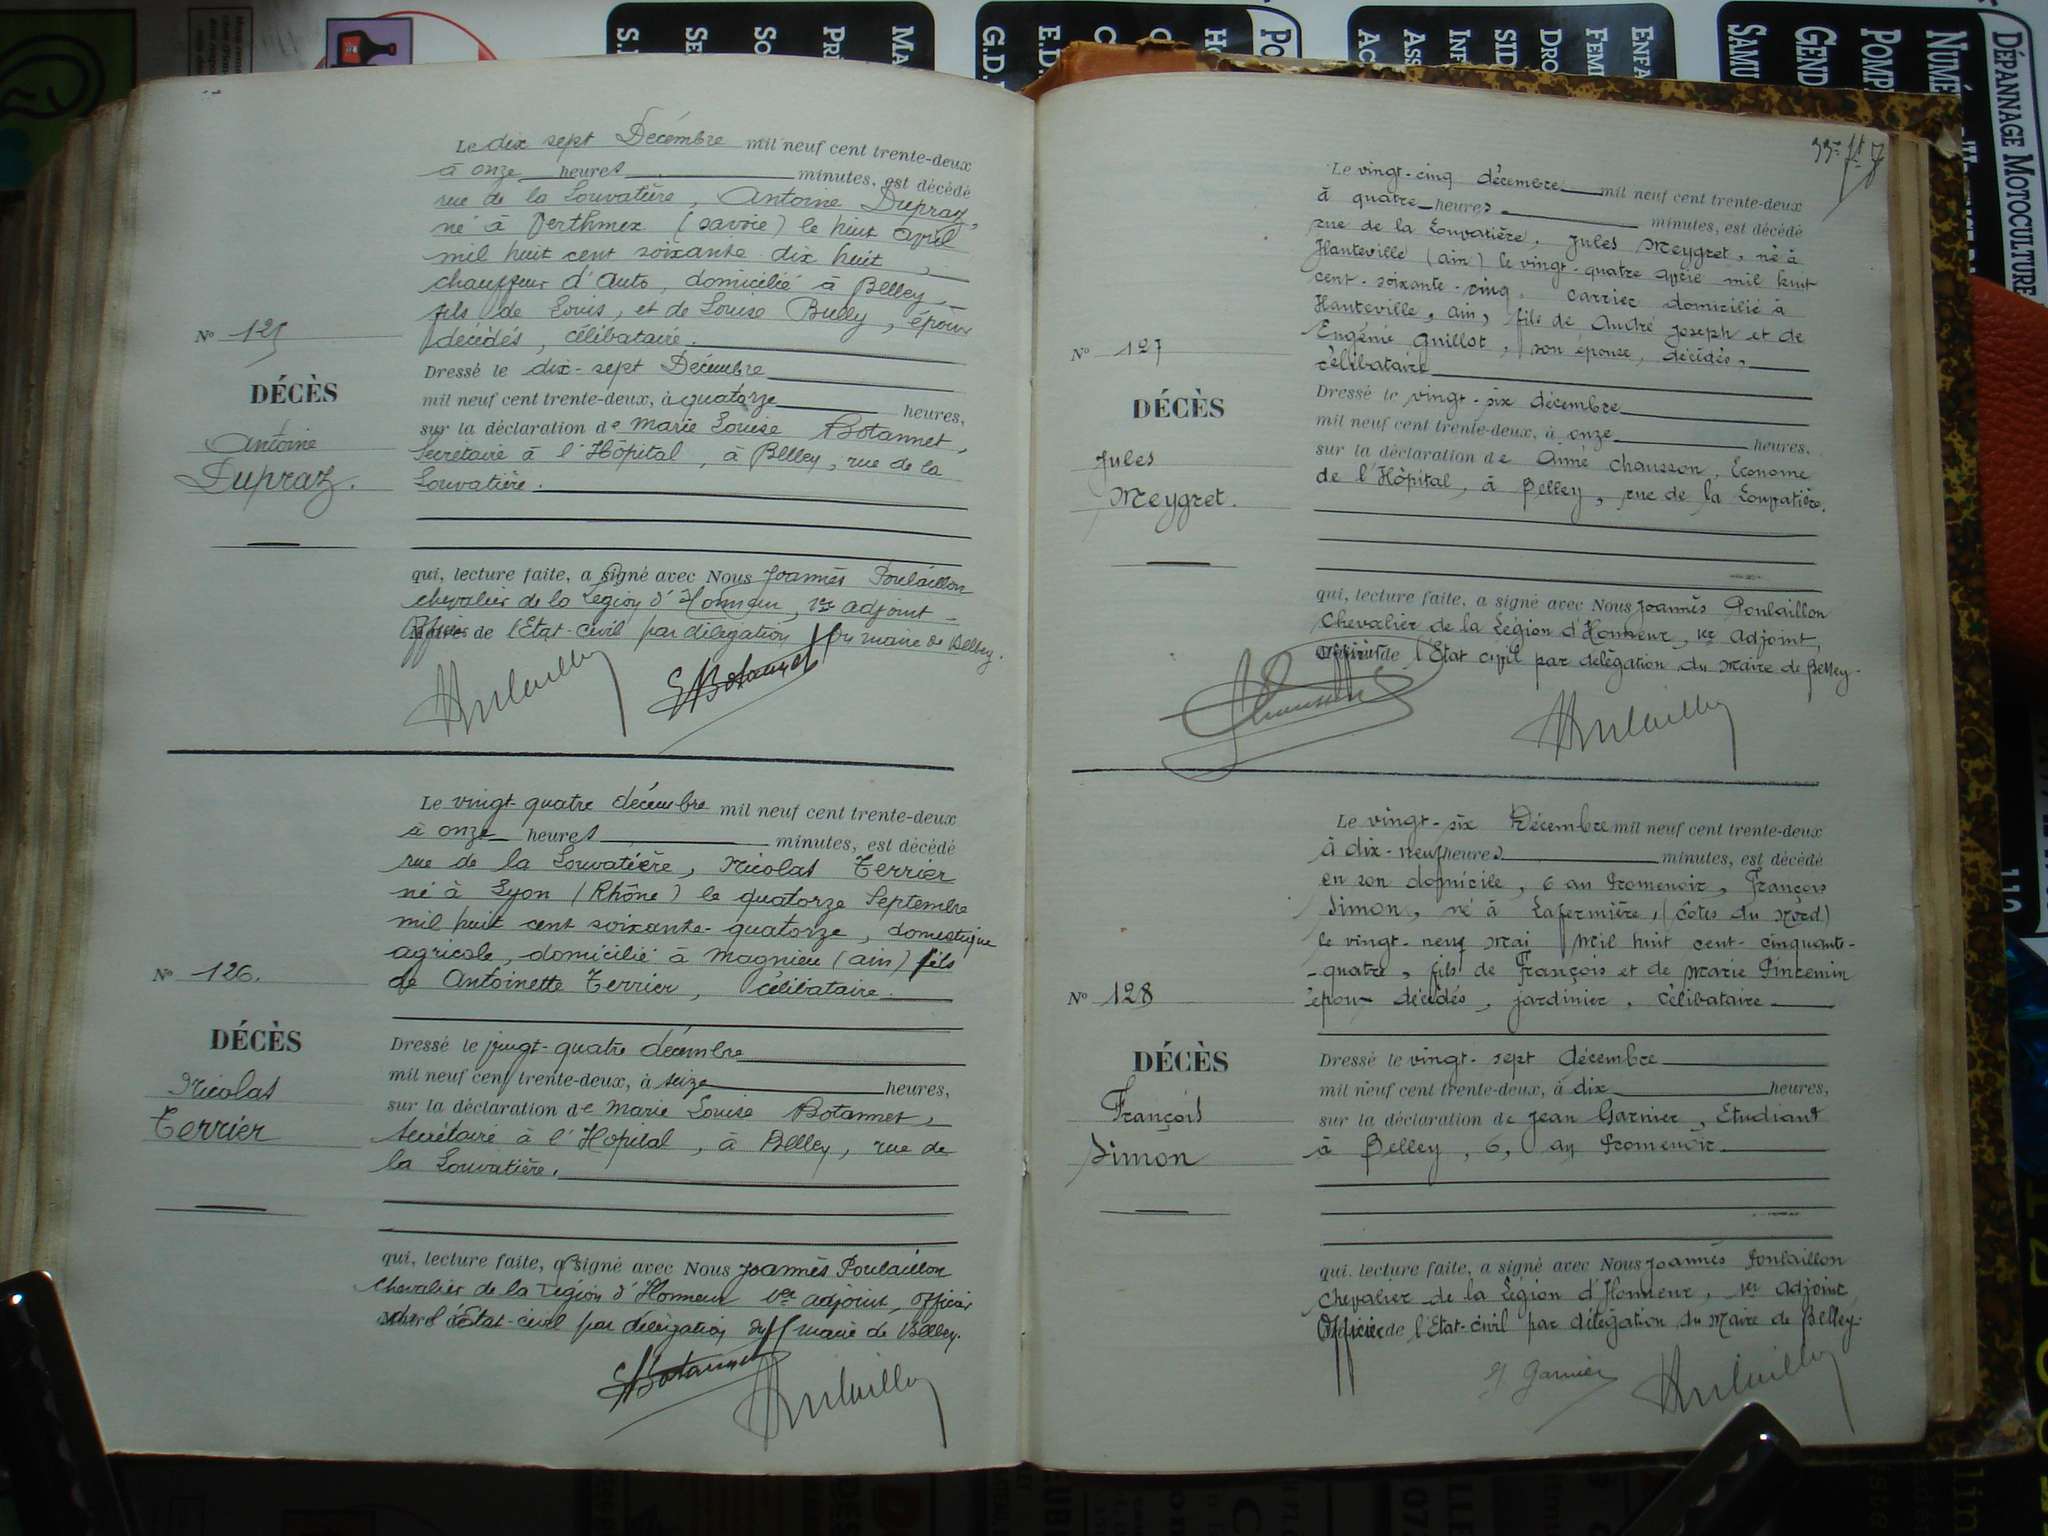 Le dix sept Décembre mil neuf cent trente-deux
à onze heures minutes, est décédé
rue de la Louvatière, Antoine Dupraz,
né à Verthmex (savoie) le huit avril
mil huit cent soixante dix huit,
chauffeur d'auto, domicilié à Belley
fils de Louis, et de Louise Burdy, époux
décédés, célibataire.
Dressé le dix-sept Décembre
mil neuf cent trente-deux, à quatorze heures,
sur la déclaration de Marie Louise Botannet,
Secrétaire à l'Hôpital, à Belley, rue de la
Louvatière.
qui, lecture faite, a signé avec Nous Joannès Poulaillon
chevalier de la Légion d'Honneur, 1er adjoint
Officier de l'Etat-civil par délégation du maire de Belley.
No 125
DÉCÈS
Antoine
Dupraz.
Le vingt-quatre décembre mil neuf cent trente-deux
à onze heures minutes, est décédé
rue de la Louvatière, Nicolas Terrier
né à Lyon (Rhône) le quatorze Septembre
mil huit cent soixante-quatorze, domestique
agricole, domicilié à Magnieu (ain) fils
de Antoinette Terrier, célibataire.
Dressé le vingt-quatre décembre
mil neuf cent trente-deux, à seize heures,
sur la déclaration de Marie Louise Botannet,
Secrétaire à l'Hopital, à Belley, rue de
la Louvatière.
qui, lecture faite, a signé avec Nous Joannès Poulaillon
Chevalier de la Légion d'Honneur 1er adjoint, officier
de l'Etat-civil par délégation du maire de Belley.
Botannet
No 126.
DÉCÈS
Nicolas
Terrier
Le vingt-cinq décembre mil neuf cent trente-deux
à quatre heures minutes, est décédé
rue de la Louvatière, Jules Meygret, né à
Hauteville (ain) le vingt-quatre avril mil huit
cent-soixante-cinq, carrier domicilié à
Hauteville, ain, fils de André Joseph et de
Eugénie Guillot, son épouse, décédés,
célibataire
Dressé le vingt-six décembre
mil neuf cent trente-deux, à onze heures,
sur la déclaration de Aimé Chausson, Econome
de l'Hôpital, à Belley, rue de la Louvatière.
qui, lecture faite, a signé avec Nous Joannès Poulaillon
Chevalier de la Légion d'Honneur, 1er adjoint,
Officier de l'Etat civil par délégation du Maire de Belley.
No 127
DÉCÈS
Jules
Meygret.
Le vingt-six Décembre mil neuf cent trente-deux
à dix-neuf heures minutes, est décédé
en son domicile, 6 au Promenoir, François
Simon, né à Lafermière, (Côtes du Nord)
le vingt-neuf Mai mil huit cent-cinquante-
-quatre, fils de François et de Marie Pincemin
époux décédés, jardinier, célibataire
Dressé le vingt-sept décembre
mil neuf cent trente-deux, à dix heures,
sur la déclaration de Jean Garnier, Etudiant
à Belley, 6, au Promenoir.
qui, lecture faite, a signé avec Nous Joannès Poulaillon
Chevalier de la Légion d'Honneur, 1er adjoint,
Officier de l'Etat-civil par délégation du Maire de Belley.
J Garnier
No 128
DÉCÈS
François
Simon
DÉPANNAGE MOTOCULTURE
NUMÉ
POMP
GEND
SAMU
ENFA
FEM
DRO
SID
INF
ASS
AC